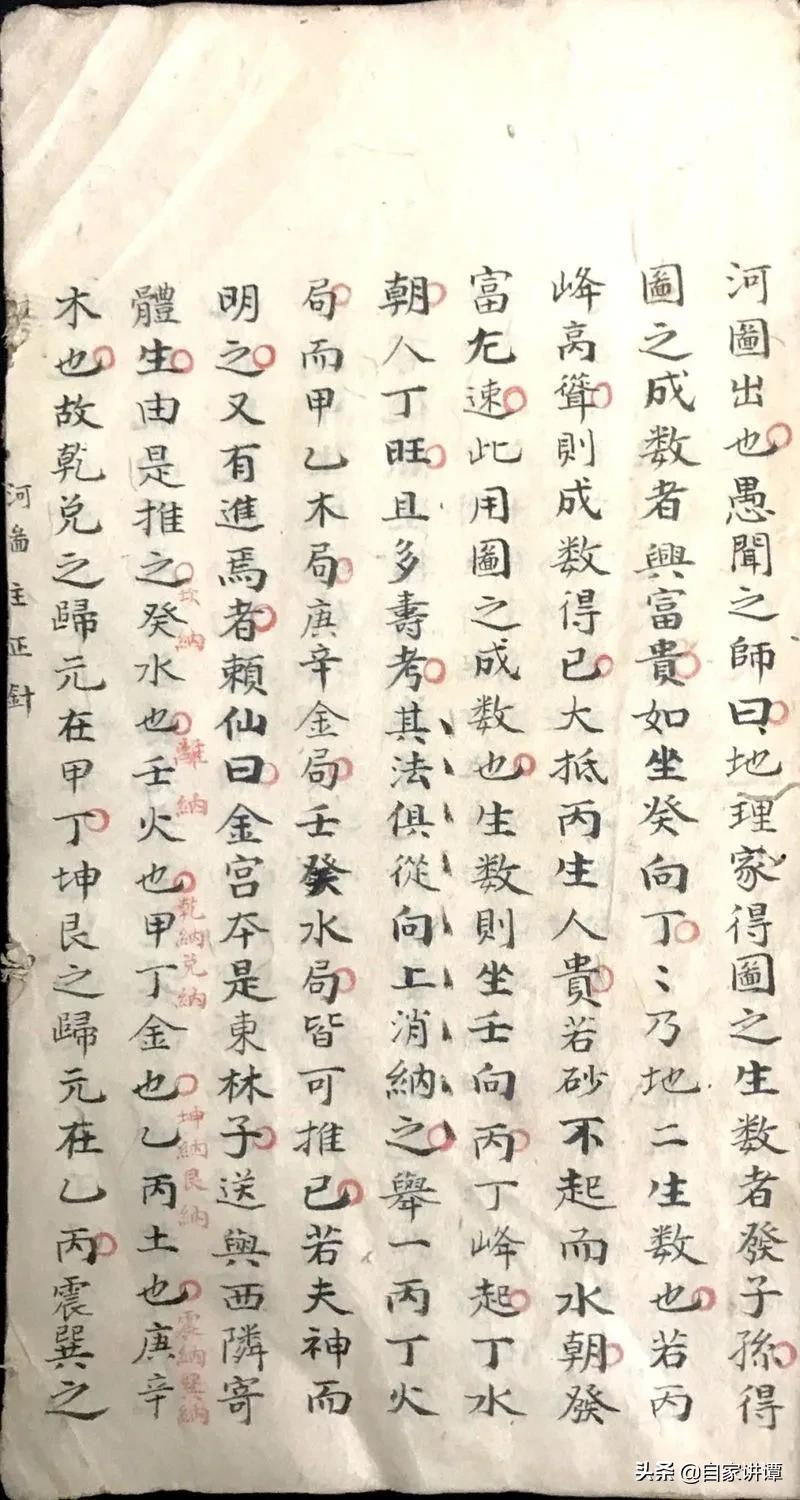 河圖出也愚聞之師曰地理家得圖之生数者發子孫得
圖之成数者興富貴如坐癸向丁〻乃地二生数也若丙
峰高聳則成数得已大抵丙生人貴若砂不起而水朝發
富尤速此用圖之成数也生数則坐壬向丙丁峰起丁水
朝人丁旺且多壽考其法俱從向上消納之舉一丙丁火
局而甲乙木局庚辛金局壬癸水局皆可推已若夫神而
明之又有進焉者賴仙曰金宫夲是東林子送與西隣寄
體生由是推之癸水也壬火也甲丁金也乙丙土也庚辛
坎納
離納
乾納兑納
坤納艮納
震納巽納
木也故乾兑之歸元在甲丁坤艮之歸元在乙丙震巽之
河啚主正針
头条 @自家讲谭